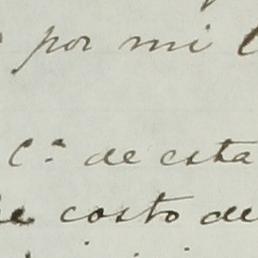 por mi
C.ª de esta
costo de